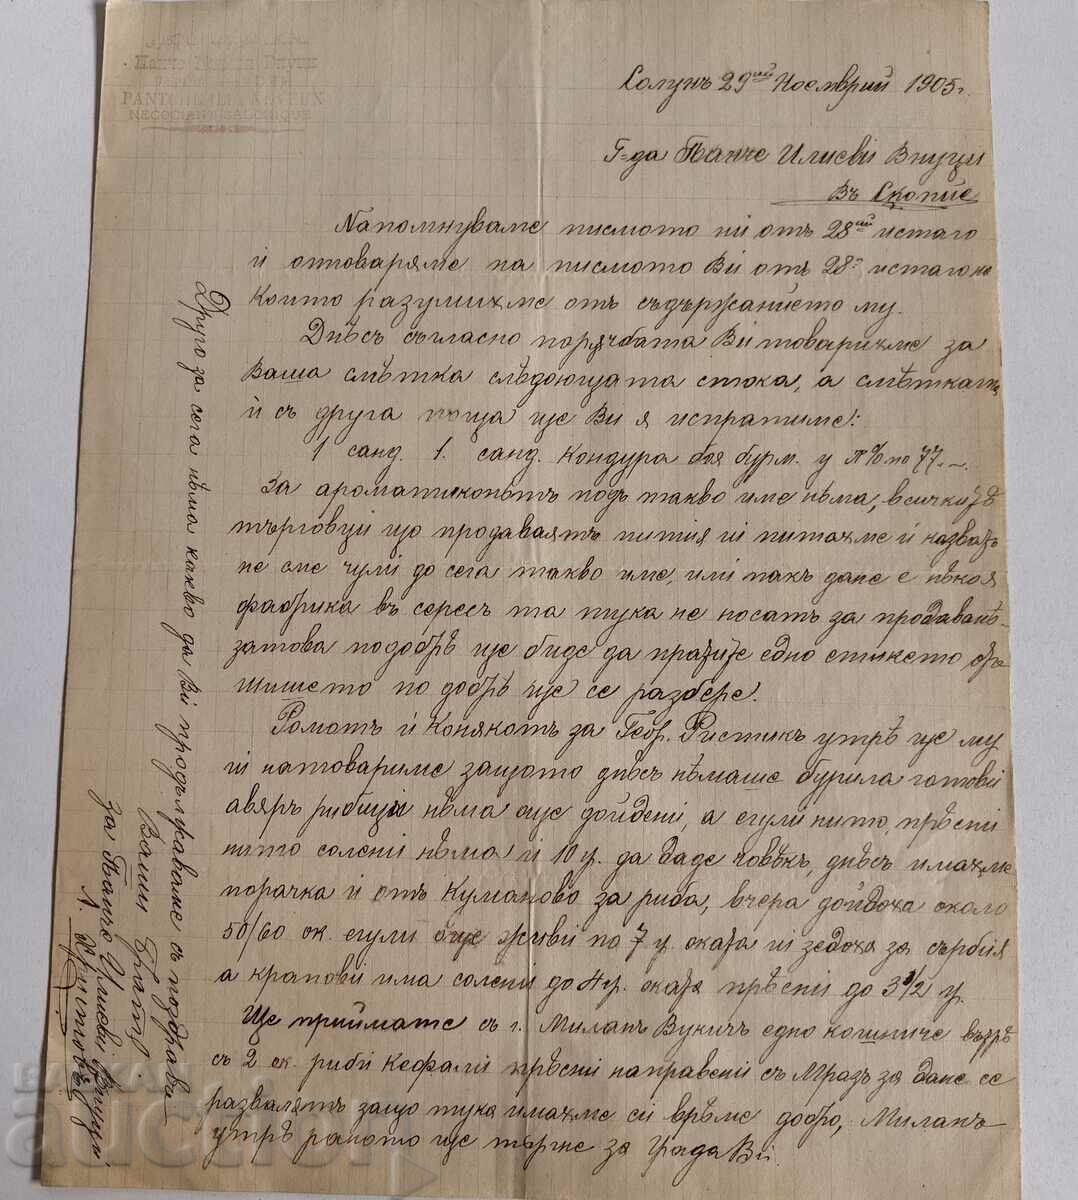 PANTCHE ILIEV NEVEUX
NEGOCIANT-SALONIQUE
Солунъ 29ий Ноемврий 1905г.
Г-да Панче Илиеви Внуци
Въ Скопие
Напомнуваме писмото ни отъ 28ий истаго
и отговаряме на писмото Ви отъ 28° истаго на
които разумихме отъ съдържанието му.
Днѣсъ съгласно порѫчбата Ви товарихме за
Ваша смѣтка слѣдующата стока, а смѣтката
и съ друга поща ще Ви я испратиме:
1 санд. 1. санд. кондура боя бурм. у п% по 77.–.
За ароматикопътъ подъ такво име нѣма, всичкитѣ
търговци що продаваятъ пития ги питахме и казватъ
не сме чули до сега такво име, или пакъ дане е нѣкоя
фабрика въ сересъ та тука не носатъ за продаванѣ
затова подобрѣ ще биде да пратите едно етикето отъ
шишето по добрѣ ще се разбере.
Ромотъ и конякотъ за Геор. Ристикъ утрѣ ще му
ги натовариме защото днѣсъ нѣмаше бурила готови
авяръ рибици нѣма още дойдени, а егули нито, прѣсни
нито солени нѣма и 10 г. да даде човѣкъ, днѣсъ имахме
порачка и отъ Куманово за риба, вчера дойдоха около
50/60 ок. егули още живи по 7 г. оката ги зедоха за сърбия
а крапови има солени до 4 г. оката прѣсни до 3 1/2 г.
Ще приймате съ г. Миланъ Вукичъ едно кошниче вътрѣ
съ 2 ок. риби кефали прѣсни направени съ мразъ за дане се
развалятъ защо тука имахме си врѣме добро, Миланъ
утрѣ раното ще търгне за града Ви.
Друго за сега нѣма какво да Ви продължаваме съ поздрави
Ваши Братя.
За Панчо Илиеви Внуци